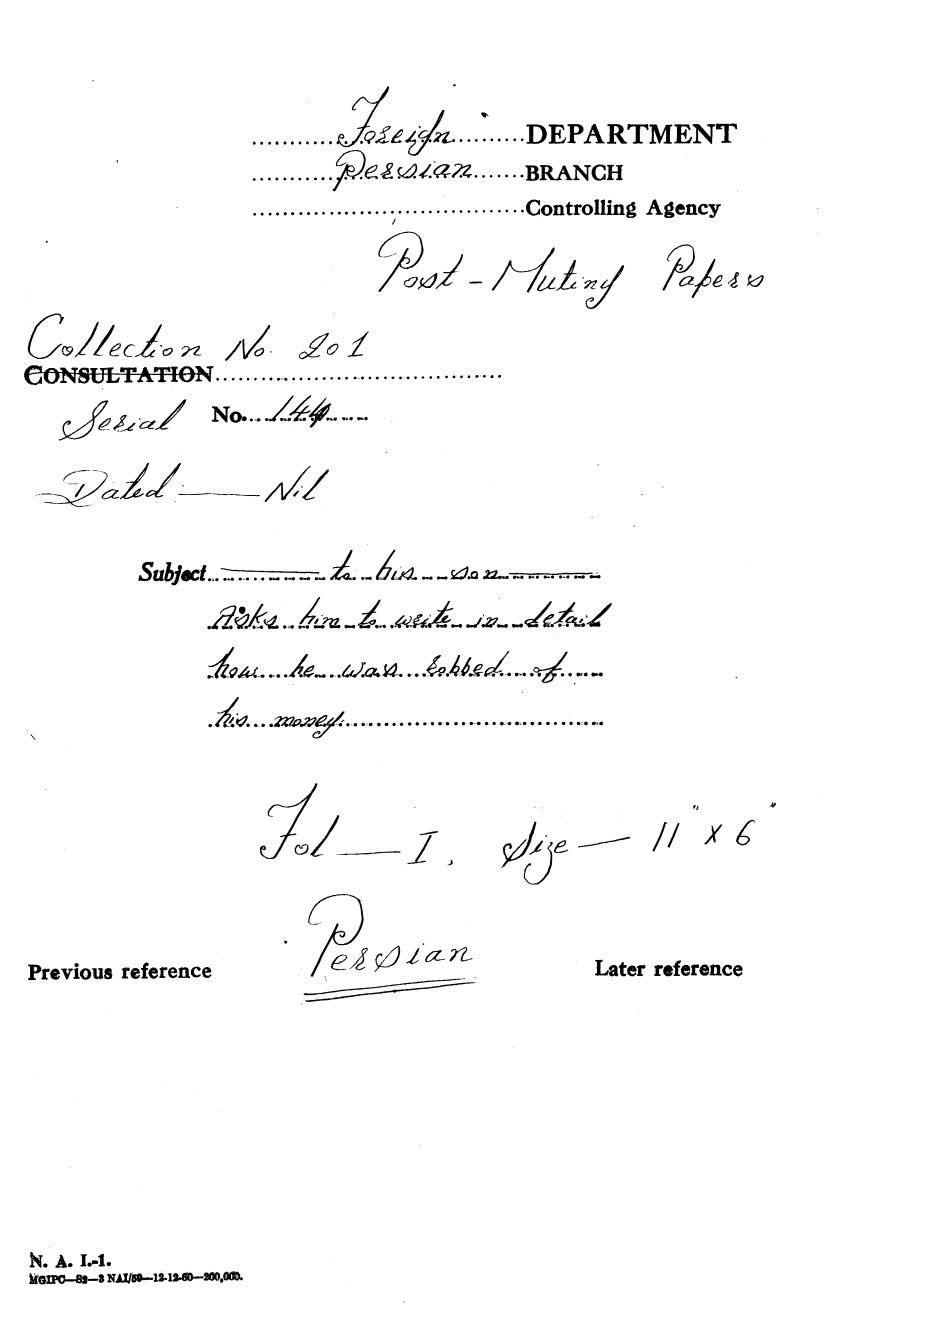 Foreign DEPARTMENT
Persian BRANCH
Controlling Agency
Post-Mutiny Papers
Collection No. 201
CONSULTATION
Serial No. 144
Dated — Nil
Subject — to his son —
Asks him to write in detail
how he was robbed of
his money.
Fol — I, Size — 11" x 6"
Persian
Previous reference Later reference
N. A. I.-1.
MGIPC—S2—3 NAI/59—12-12-60—200,000.